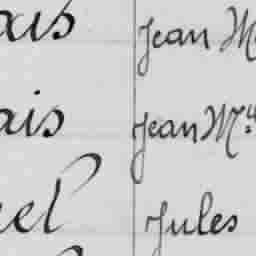 ais Jean M
ais Jean M
el Jules